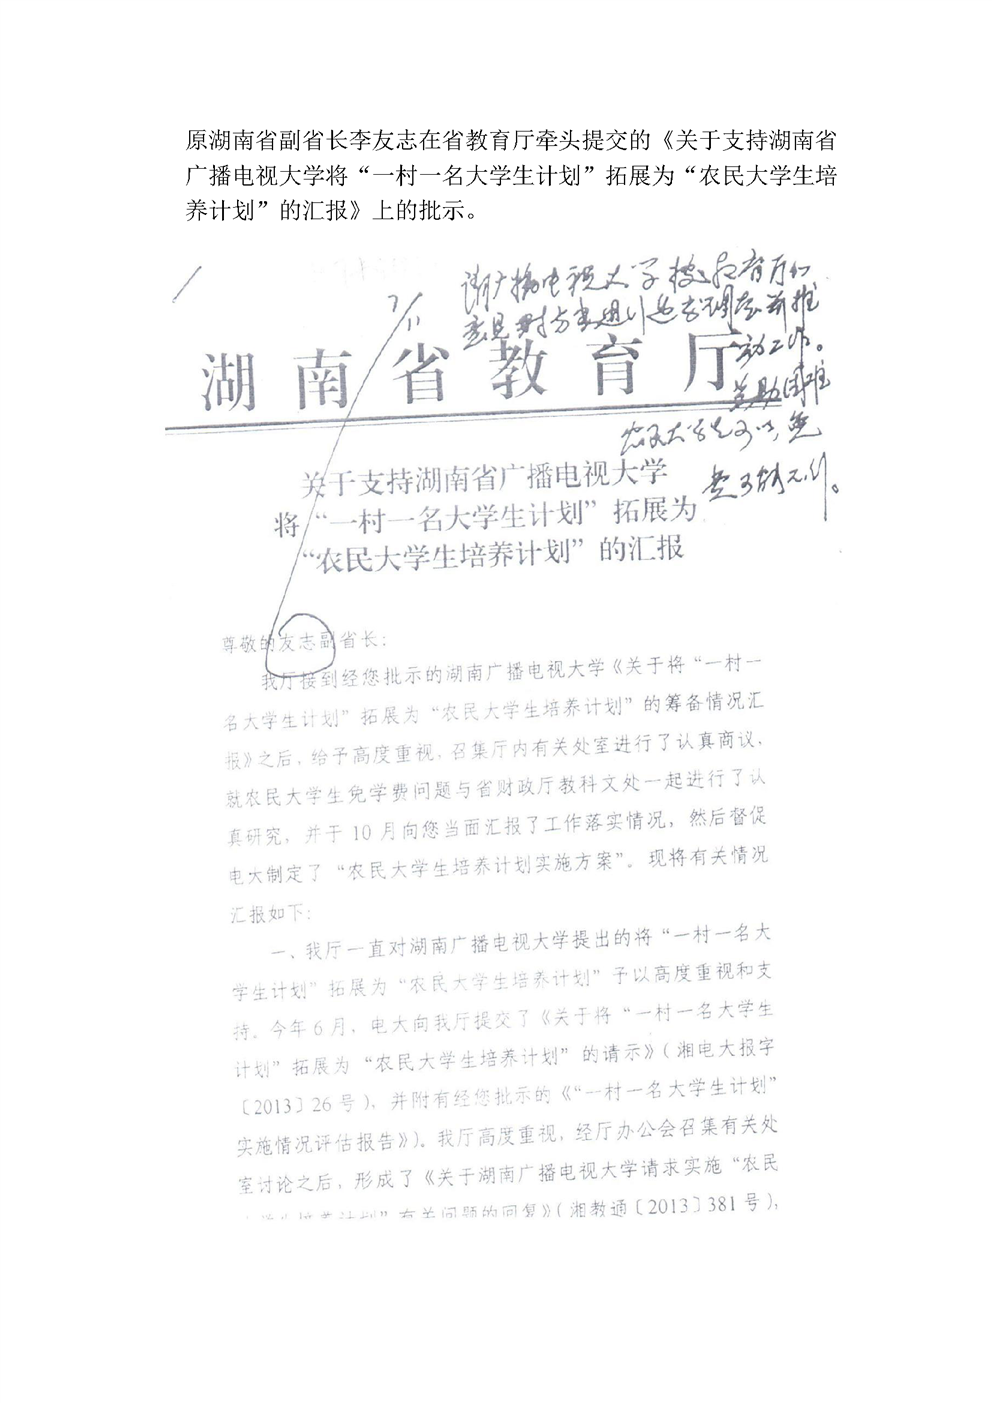 原湖南省副省长李友志在省教育厅牵头提交的《关于支持湖南省
广播电视大学将“一村一名大学生计划”拓展为“农民大学生培
养计划”的汇报》上的批示。
请广播电视大学按教育厅
意见对方案进行
动工作。
困难
农民大学生可以免
费
7/11
湖南省教育厅
关于支持湖南省广播电视大学
将“一村一名大学生计划”拓展为
“农民大学生培养计划”的汇报
尊敬的友志副省长：
我厅接到经您批示的湖南广播电视大学《关于将“一村一
名大学生计划”拓展为“农民大学生培养计划”的筹备情况汇
报》之后，给予高度重视，召集厅内有关处室进行了认真商议，
就农民大学生免学费问题与省财政厅教科文处一起进行了认
真研究，并于10月向您当面汇报了工作落实情况，然后督促
电大制定了“农民大学生培养计划实施方案”。现将有关情况
汇报如下：
一、我厅一直对湖南广播电视大学提出的将“一村一名大
学生计划”拓展为“农民大学生培养计划”予以高度重视和支
持。今年6月，电大向我厅提交了《关于将“一村一名大学生
计划”拓展为“农民大学生培养计划”的请示》（湘电大报字
〔2013〕26号），并附有经您批示的《“一村一名大学生计划”
实施情况评估报告》）。我厅高度重视，经厅办公会召集有关处
室讨论之后，形成了《关于湖南广播电视大学请求实施“农民
大学生培养计划”有关问题的回复》（湘教通〔2013〕381号），